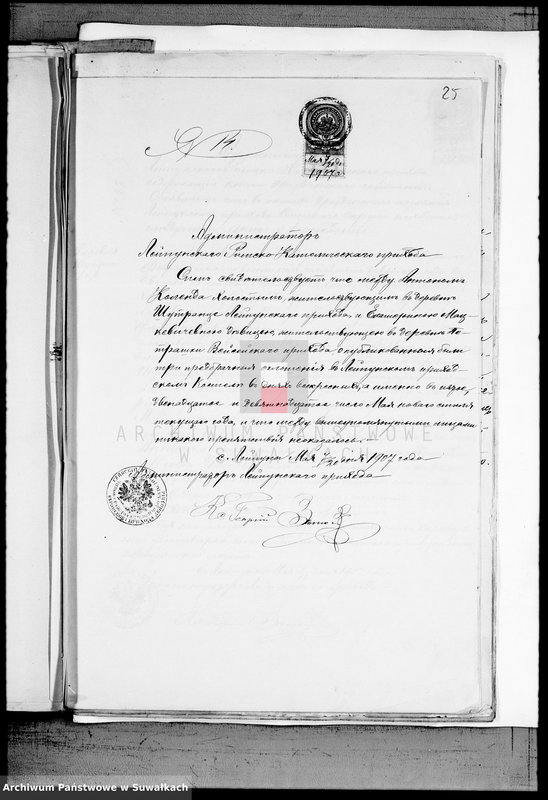 25
Мая 7/20 дня
1907 г.
Администраторъ
Лейпунскаго Римско-Католическаго прихода
Симъ свидѣтельствуетъ что между Антономъ
Коленда холостымъ, жительствующимъ въ деревнѣ
Лейпунскаго прихода, и Екатериною Мац-
кевичевною дѣвицею, жительствующею въ деревнѣ
Вейсейскаго прихода опубликованныя были
три предбрачныя оглашенія въ Лейпунскомъ приход-
скомъ Костелѣ въ дни воскресные, а именно въ
двѣнадцатое и девятнадцатое число Мая новаго стиля
текущаго года, и что между вышеупомянутыми лицами
никакого препятствія неоказалось.
с. Лейпуны Мая 7/20 дня 1907 года
Администраторъ Лейпунскаго прихода
Кс Георгій
ARCHIWUM PAŃSTWOWE
W SUWAŁKACH
Archiwum Państwowe w Suwałkach